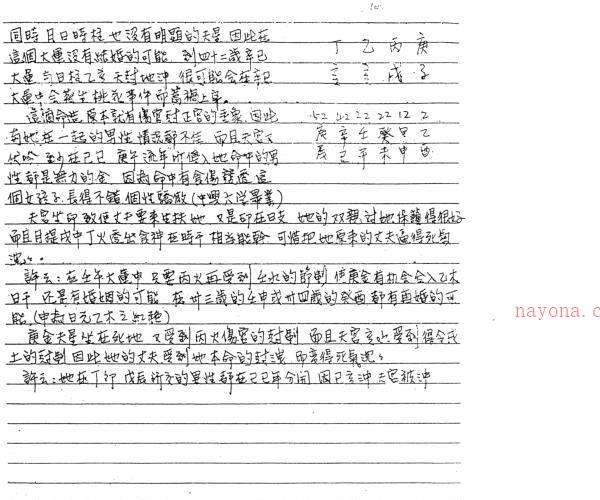 同時月日時柱也沒有明顯的夫星 因此在
這個大運沒有結婚的可能 到四十二歲辛巳
大運 与日柱乙亥天尅地沖 很可能会在辛巳
大運中会發生桃花事件而
丁乙丙庚
亥亥戌子
52 42 32 22 12 2
庚辛壬癸甲乙
辰巳午未申酉
這個命造原本就有傷官尅正官的
与她在一起的男性情況都不佳 而且夫宮又
至少在己巳 庚午流年所進入她命中的男
性都是無力的金 因為命中有食傷透
個女孩子長得不錯個性驕傲(中興大学畢業)
夫宮坐印敦促丈夫要來生扶她 又是印在日支 她的双親對她保護得很好
而且月提戌中丁火透出食神在時干 相当能幹 可惜把她原來的丈夫逼得死氣
沉沉。
許云:在壬午大運中 只要丙火再受到壬水的節制 使庚金有机会合入乙木
日干 还是有婚姻的可能 在卅三歲的壬申或卅四歲的癸酉都有再婚的可
能(申為日元乙木之紅鸞)
庚金夫星坐在死地 又受到丙火傷官的尅制 而且夫宮亥水受到得令戌
土的尅制 因此她的丈夫受到她本命的尅洩 而变得死氣沉沉
許云:她在丁卯 戊辰所交的男性都在己巳年分開 因巳亥沖 夫宮被沖
nayona.c